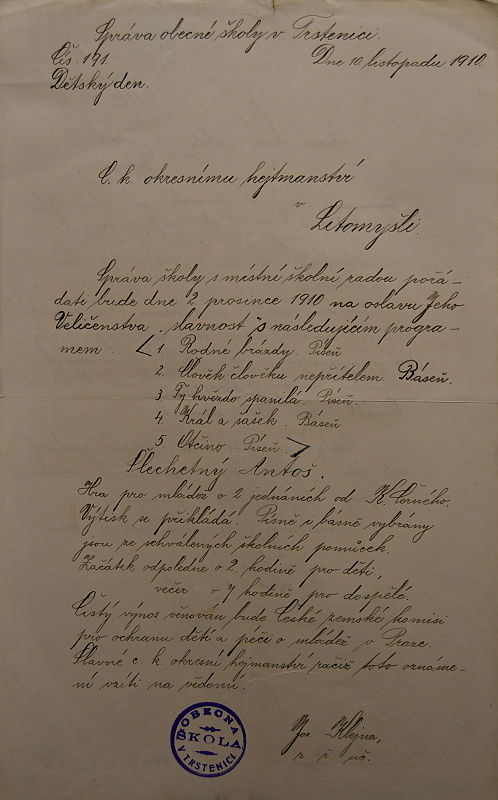 Správa obecné školy v Trstenici.
Čís. 191. Dne 10. listopadu 1910.
Dětský den.
C. k. okresnímu hejtmanství
v
Litomyšli.
Správa školy s místní školní radou pořá-
dati bude dne 2. prosince 1910 na oslavu Jeho
Veličenstva „slavnost“ s následujícím progra-
mem: 1. Rodné brázdy. Píseň
2. Člověk člověku nepřítelem. Báseň.
3. Ty hvězdo spanilá. Píseň.
4. Král a šašek. Báseň
5. Otčino Píseň.
Šlechetný Antoš.
Hra pro mládež o 2 jednáních od K. Černého.
Výtisk se přikládá. Písně i básně vybrány
jsou ze schválených školních pomůcek.
Začátek odpoledne o 2. hodině pro děti,
večer o 7 hodině pro dospělé.
Čistý výnos věnován bude České zemské komisi
pro ochranu dětí a péči o mládež v Praze.
Slavné c. k. okresní hejtmanství račiž toto oznáme-
ní vzíti na vědomí.
OBECNÁ
ŠKOLA
V TRSTENICI
Jos. Klejna,
z. ř. uč.